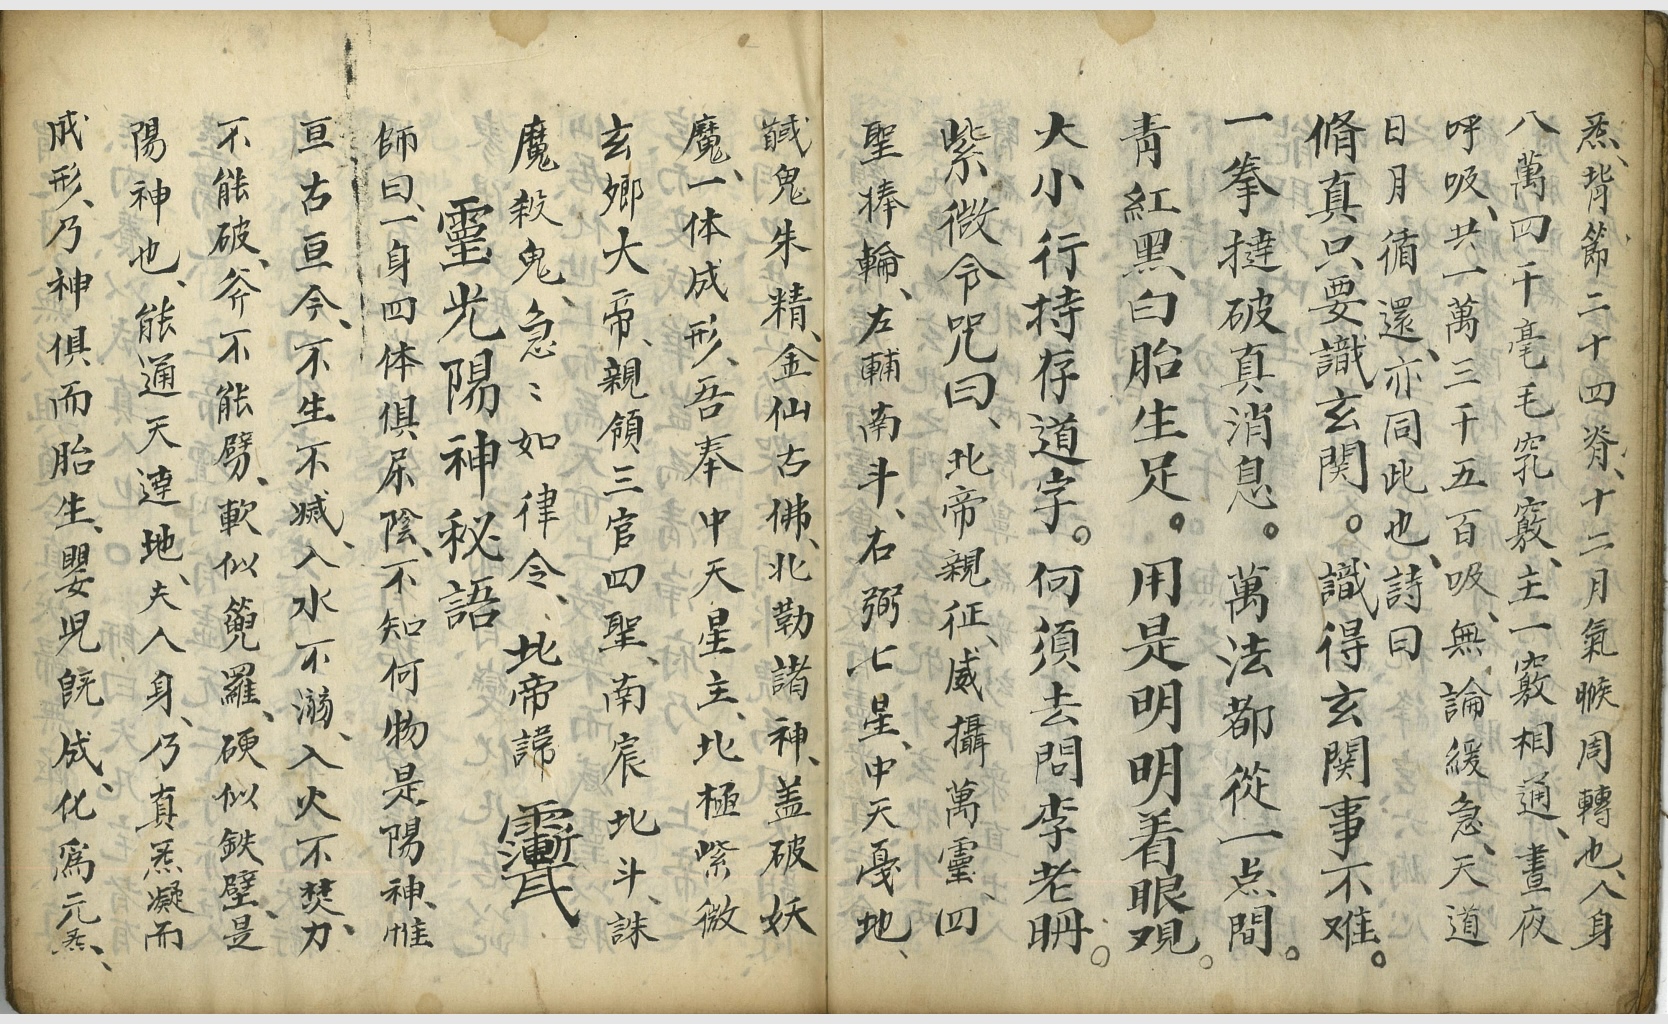 炁、背節二十四脊、十二月氣𠋫周轉也、人身
八萬四千毫毛窍竅、主一竅相通、晝夜
呼吸、共一萬三千五百吸、無論緩急、天道
日月循還、亦同此也、詩曰
脩真只要識玄関。識得玄関事不难。
一拳撻破真消息。萬法都從一点間。
青紅黑白胎生足。用是明明着眼观。
大小行持存道字。何須去問李老聃。
紫微令咒曰、北帝親征、威攝萬靈、四
聖捧輪、左輔南斗、右弼七星、中天戞地、
馘鬼朱精、金仙古佛、北勒諸神、盖破妖
魔、一体成形、吾奉中天星主、北極紫微
玄鄉大帝、親領三官四聖、南宸北斗、誅
魔殺鬼、急〻如律令、北帝諱
靈光陽神秘語
師曰、一身四体俱屎陰、不知何物是陽神、惟
亘古亘今、不生不滅、入水不溺、入火不焚、力
不能破、斧不能劈、軟似𥵻羅、硬似鉄壁、是
陽神也、能通天達地、夫人身、乃真炁凝而
成形、乃神俱而胎生、嬰児旣成、化為元炁、